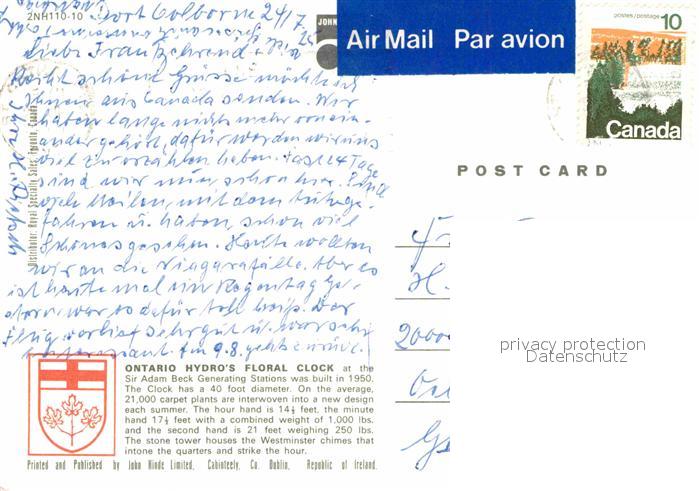 2NH110-10
Port Colborne 24/7
JOHN
Liebe Frau Zehrend
Recht schöne Grüsse möchte ich
Ihnen aus Canada senden. Wir
haben lange nichts mehr von ein-
ander gehört, dafür werden wir uns
viel zu erzählen haben. Fast 14 Tage
sind wir nun schon hier.
Meilen, mit dem
fahren u. haben schon viel
Schönes gesehen. Heute wollten
wir an die Niagarafälle. Aber es
ist heute mal ein Regentag
war es dafür toll heiß. Der
Flug verlief sehr gut u. war sehr
interessant. Am 9.8. geht's zurück.
Distributor: Royal Specialty Sales, Toronto, Canada
Air Mail Par avion
postes/postage 10
Canada
POST CARD
H.
20000
privacy protection
Datenschutz
ONTARIO HYDRO'S FLORAL CLOCK at the
Sir Adam Beck Generating Stations was built in 1950.
The Clock has a 40 foot diameter. On the average,
21,000 carpet plants are interwoven into a new design
each summer. The hour hand is 14½ feet, the minute
hand 17½ feet with a combined weight of 1,000 lbs.
and the second hand is 21 feet weighing 250 lbs.
The stone tower houses the Westminster chimes that
intone the quarters and strike the hour.
Printed and Published by John Hinde Limited, Cabinteely, Co. Dublin, Republic of Ireland.